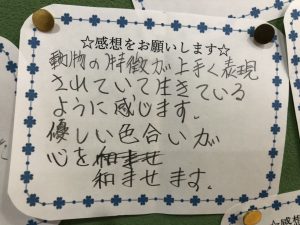 ☆感想をお願いします☆
動物の特徴が上手く表現
されていて生きている
ように感じます。
優しい色合いが
心を和ませ
和ませます。
☆感想